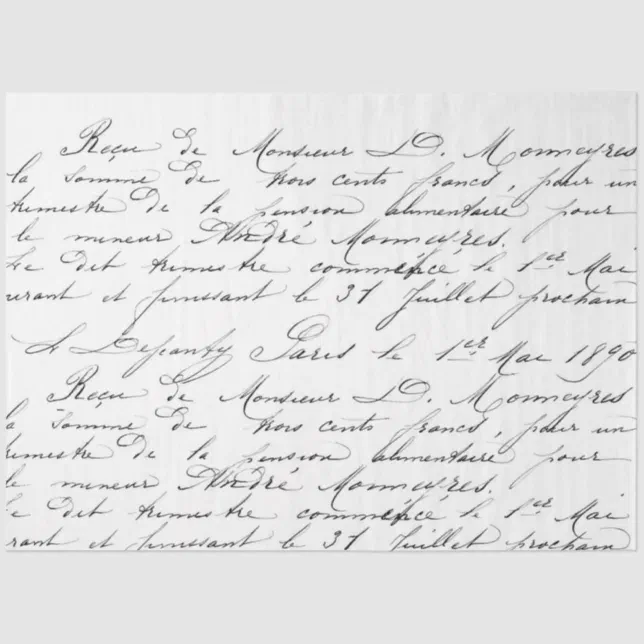 Reçu de Monsieur D. Monneyres
la somme de trois cents francs, pour un
trimestre de la pension alimentaire pour
le mineur André Monneyres.
Le dit trimestre commencé le 1er Mai
urant et finissant le 31 Juillet prochain
Paris le 1er Mai 1890
Reçu de Monsieur D. Monneyres
la somme de trois cents francs, pour un
rimestre de la pension alimentaire pour
le mineur André Monneyres.
Le dit trimestre commencé le 1er Mai
rant et finissant le 31 Juillet prochain